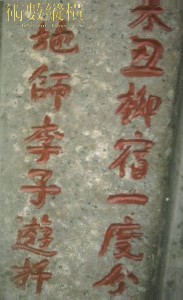 術數縱橫
未丑柳宿一度分
地師李子遊扦